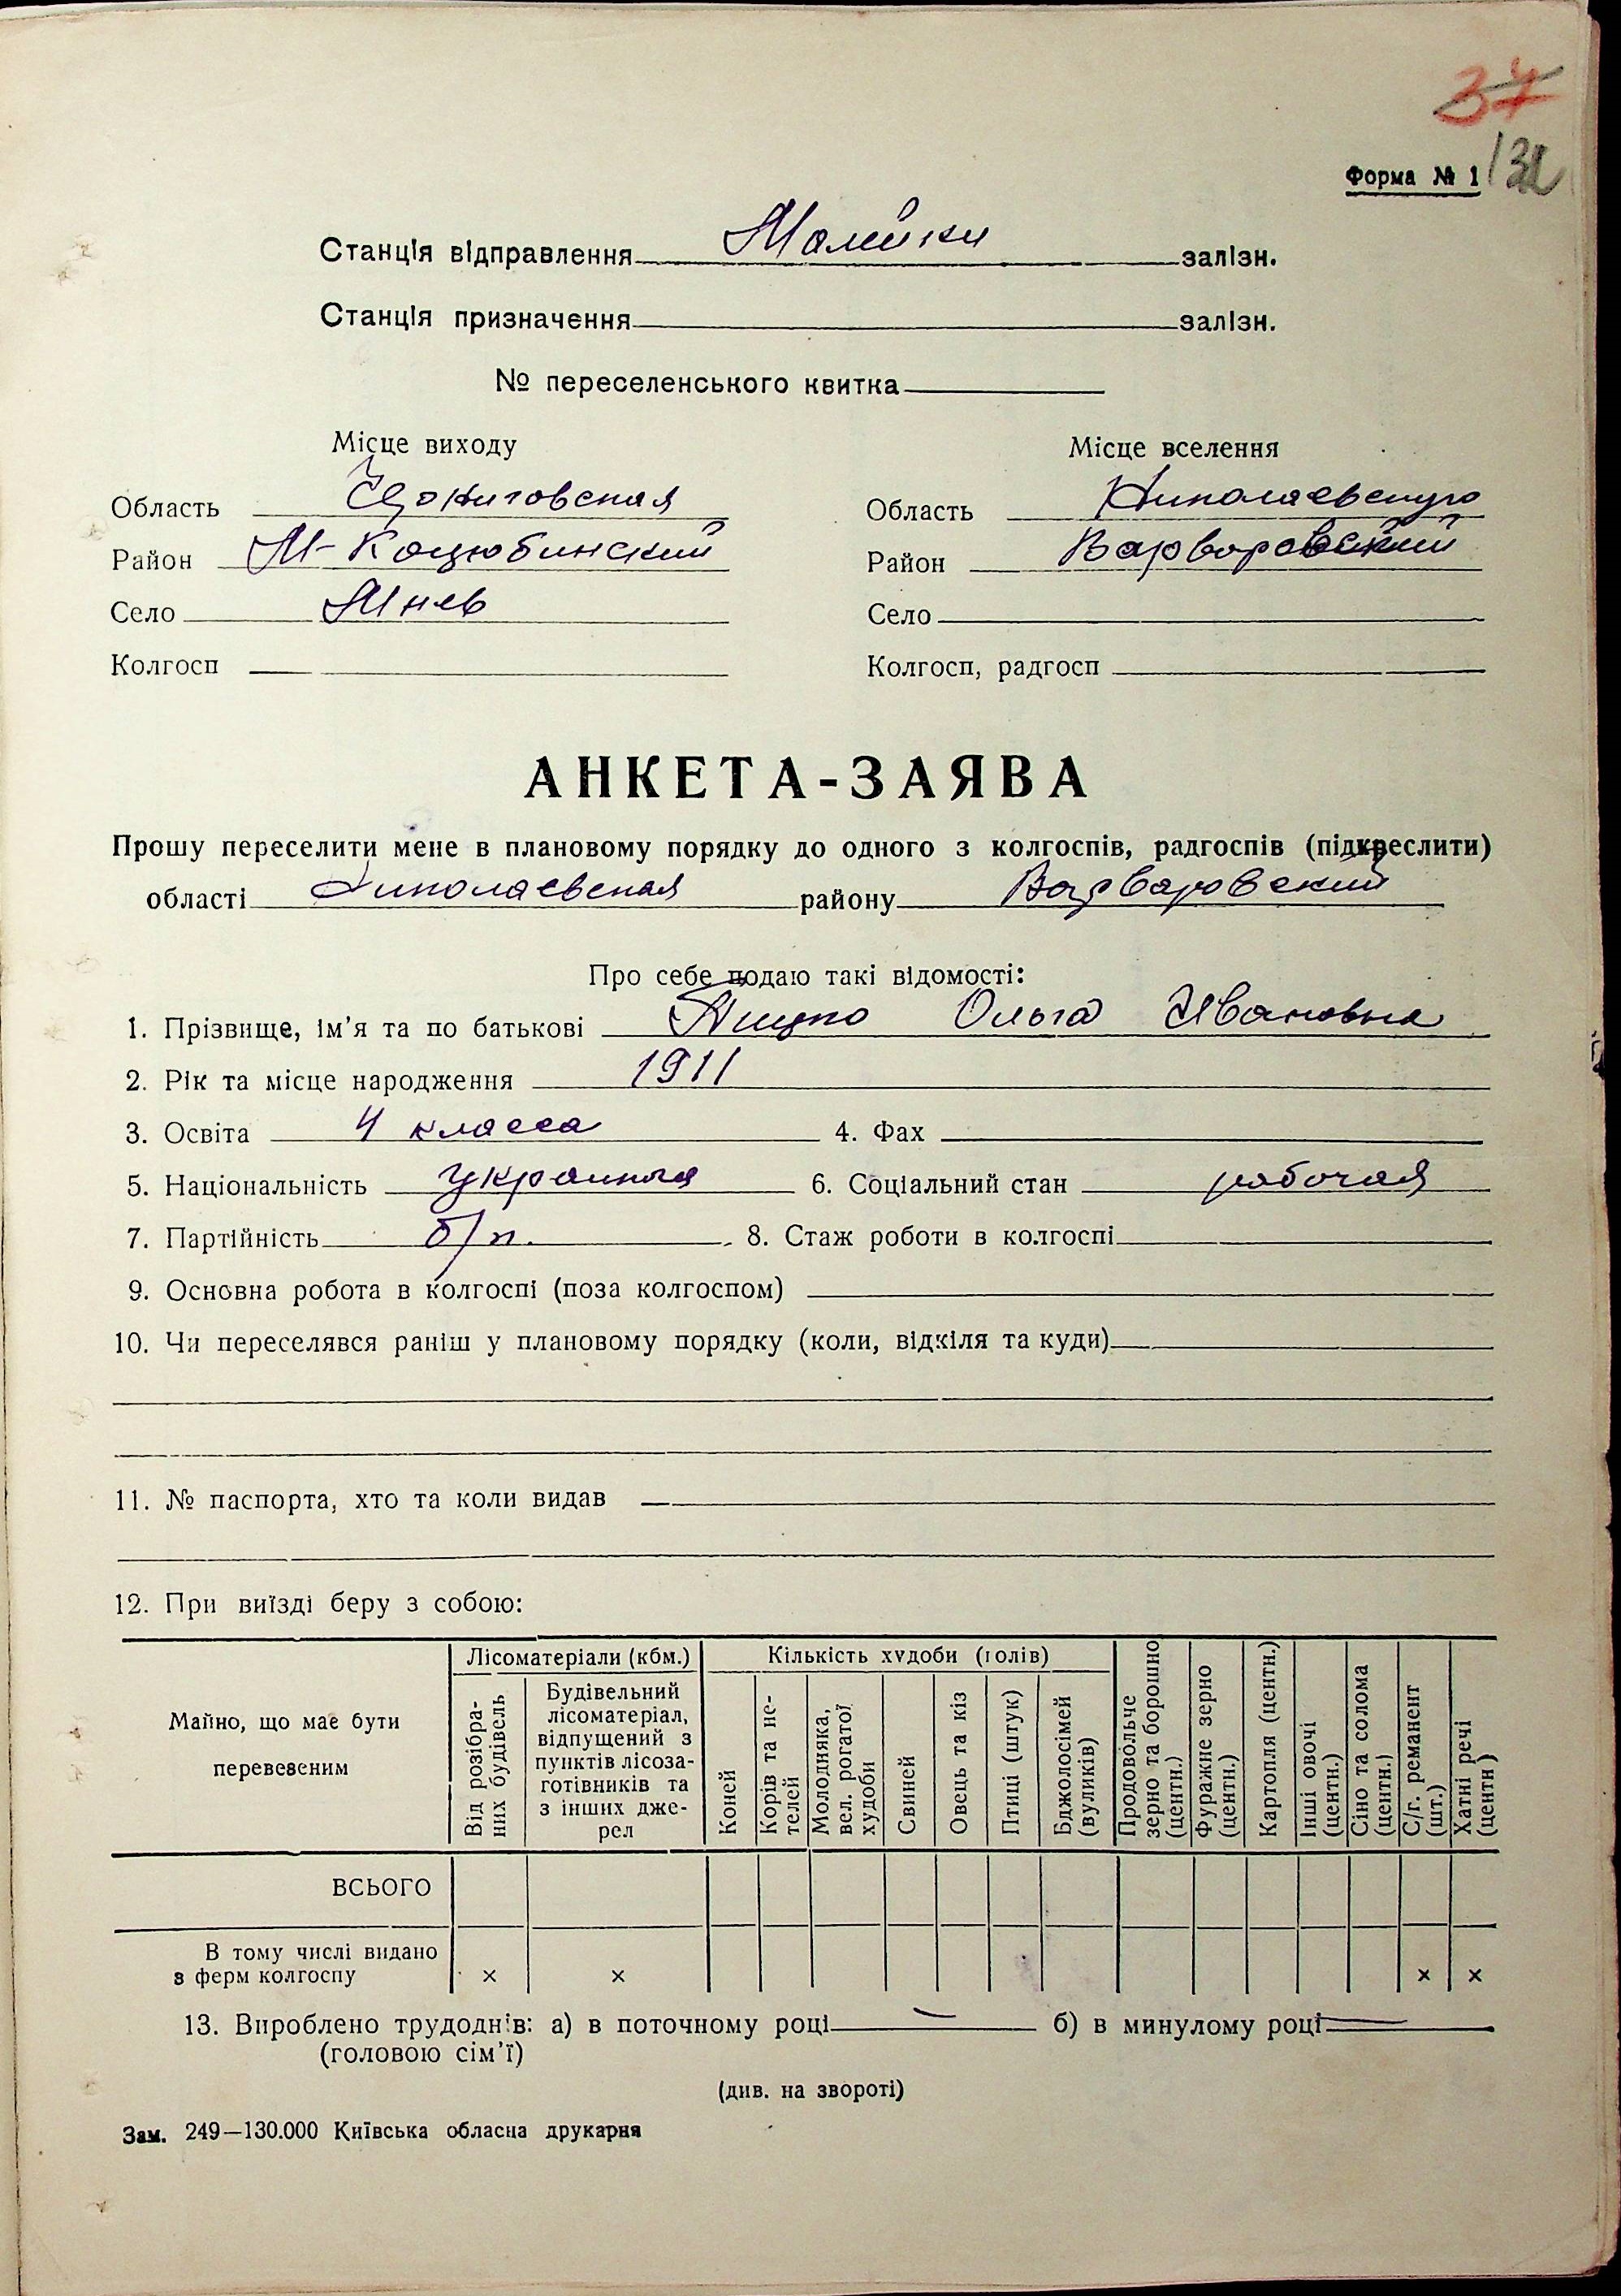 37
Форма № 1 132
Станція відправлення Малейки залізн.
Станція призначення залізн.
№ переселенського квитка
Місце виходу Місце вселення
Область Черниговская Область Николаевскую
Район М-Коцюбинский Район Варваровский
Село Пнев Село
Колгосп Колгосп, радгосп
АНКЕТА-ЗАЯВА
Прошу переселити мене в плановому порядку до одного з колгоспів, радгоспів (підкреслити)
області Николаевская району Варваровский
Про себе подаю такі відомості:
1. Прізвище, ім'я та по батькові Ольга Ивановна
2. Рік та місце народження 1911
3. Освіта 4 класса 4. Фах
5. Національність украинка 6. Соціальний стан рабочая
7. Партійність б/п. 8. Стаж роботи в колгоспі
9. Основна робота в колгоспі (поза колгоспом)
10. Чи переселявся раніш у плановому порядку (коли, відкіля та куди)
11. № паспорта, хто та коли видав
12. При виїзді беру з собою:
Майно, що має бути перевезеним
Лісоматеріали (кбм.)
Від розібраних будівель
Будівельний лісоматеріал, відпущений з пунктів лісозаготівників та з інших джерел
Кількість худоби (голів)
Коней
Корів та нетелей
Молодняка, вел. рогатої худоби
Свиней
Овець та кіз
Птиці (штук)
Бджолосімей (вуликів)
Продовольче зерно та борошно (центн.)
Фуражне зерно (центн.)
Картопля (центн.)
Інші овочі (центн.)
Сіно та солома (центн.)
С/г. реманент (шт.)
Хатні речі (центн)
ВСЬОГО
В тому числі видано
з ферм колгоспу × × × ×
13. Вироблено трудоднів: а) в поточному році — б) в минулому році —
(головою сім'ї)
(див. на звороті)
Зам. 249—130.000 Київська обласна друкарня